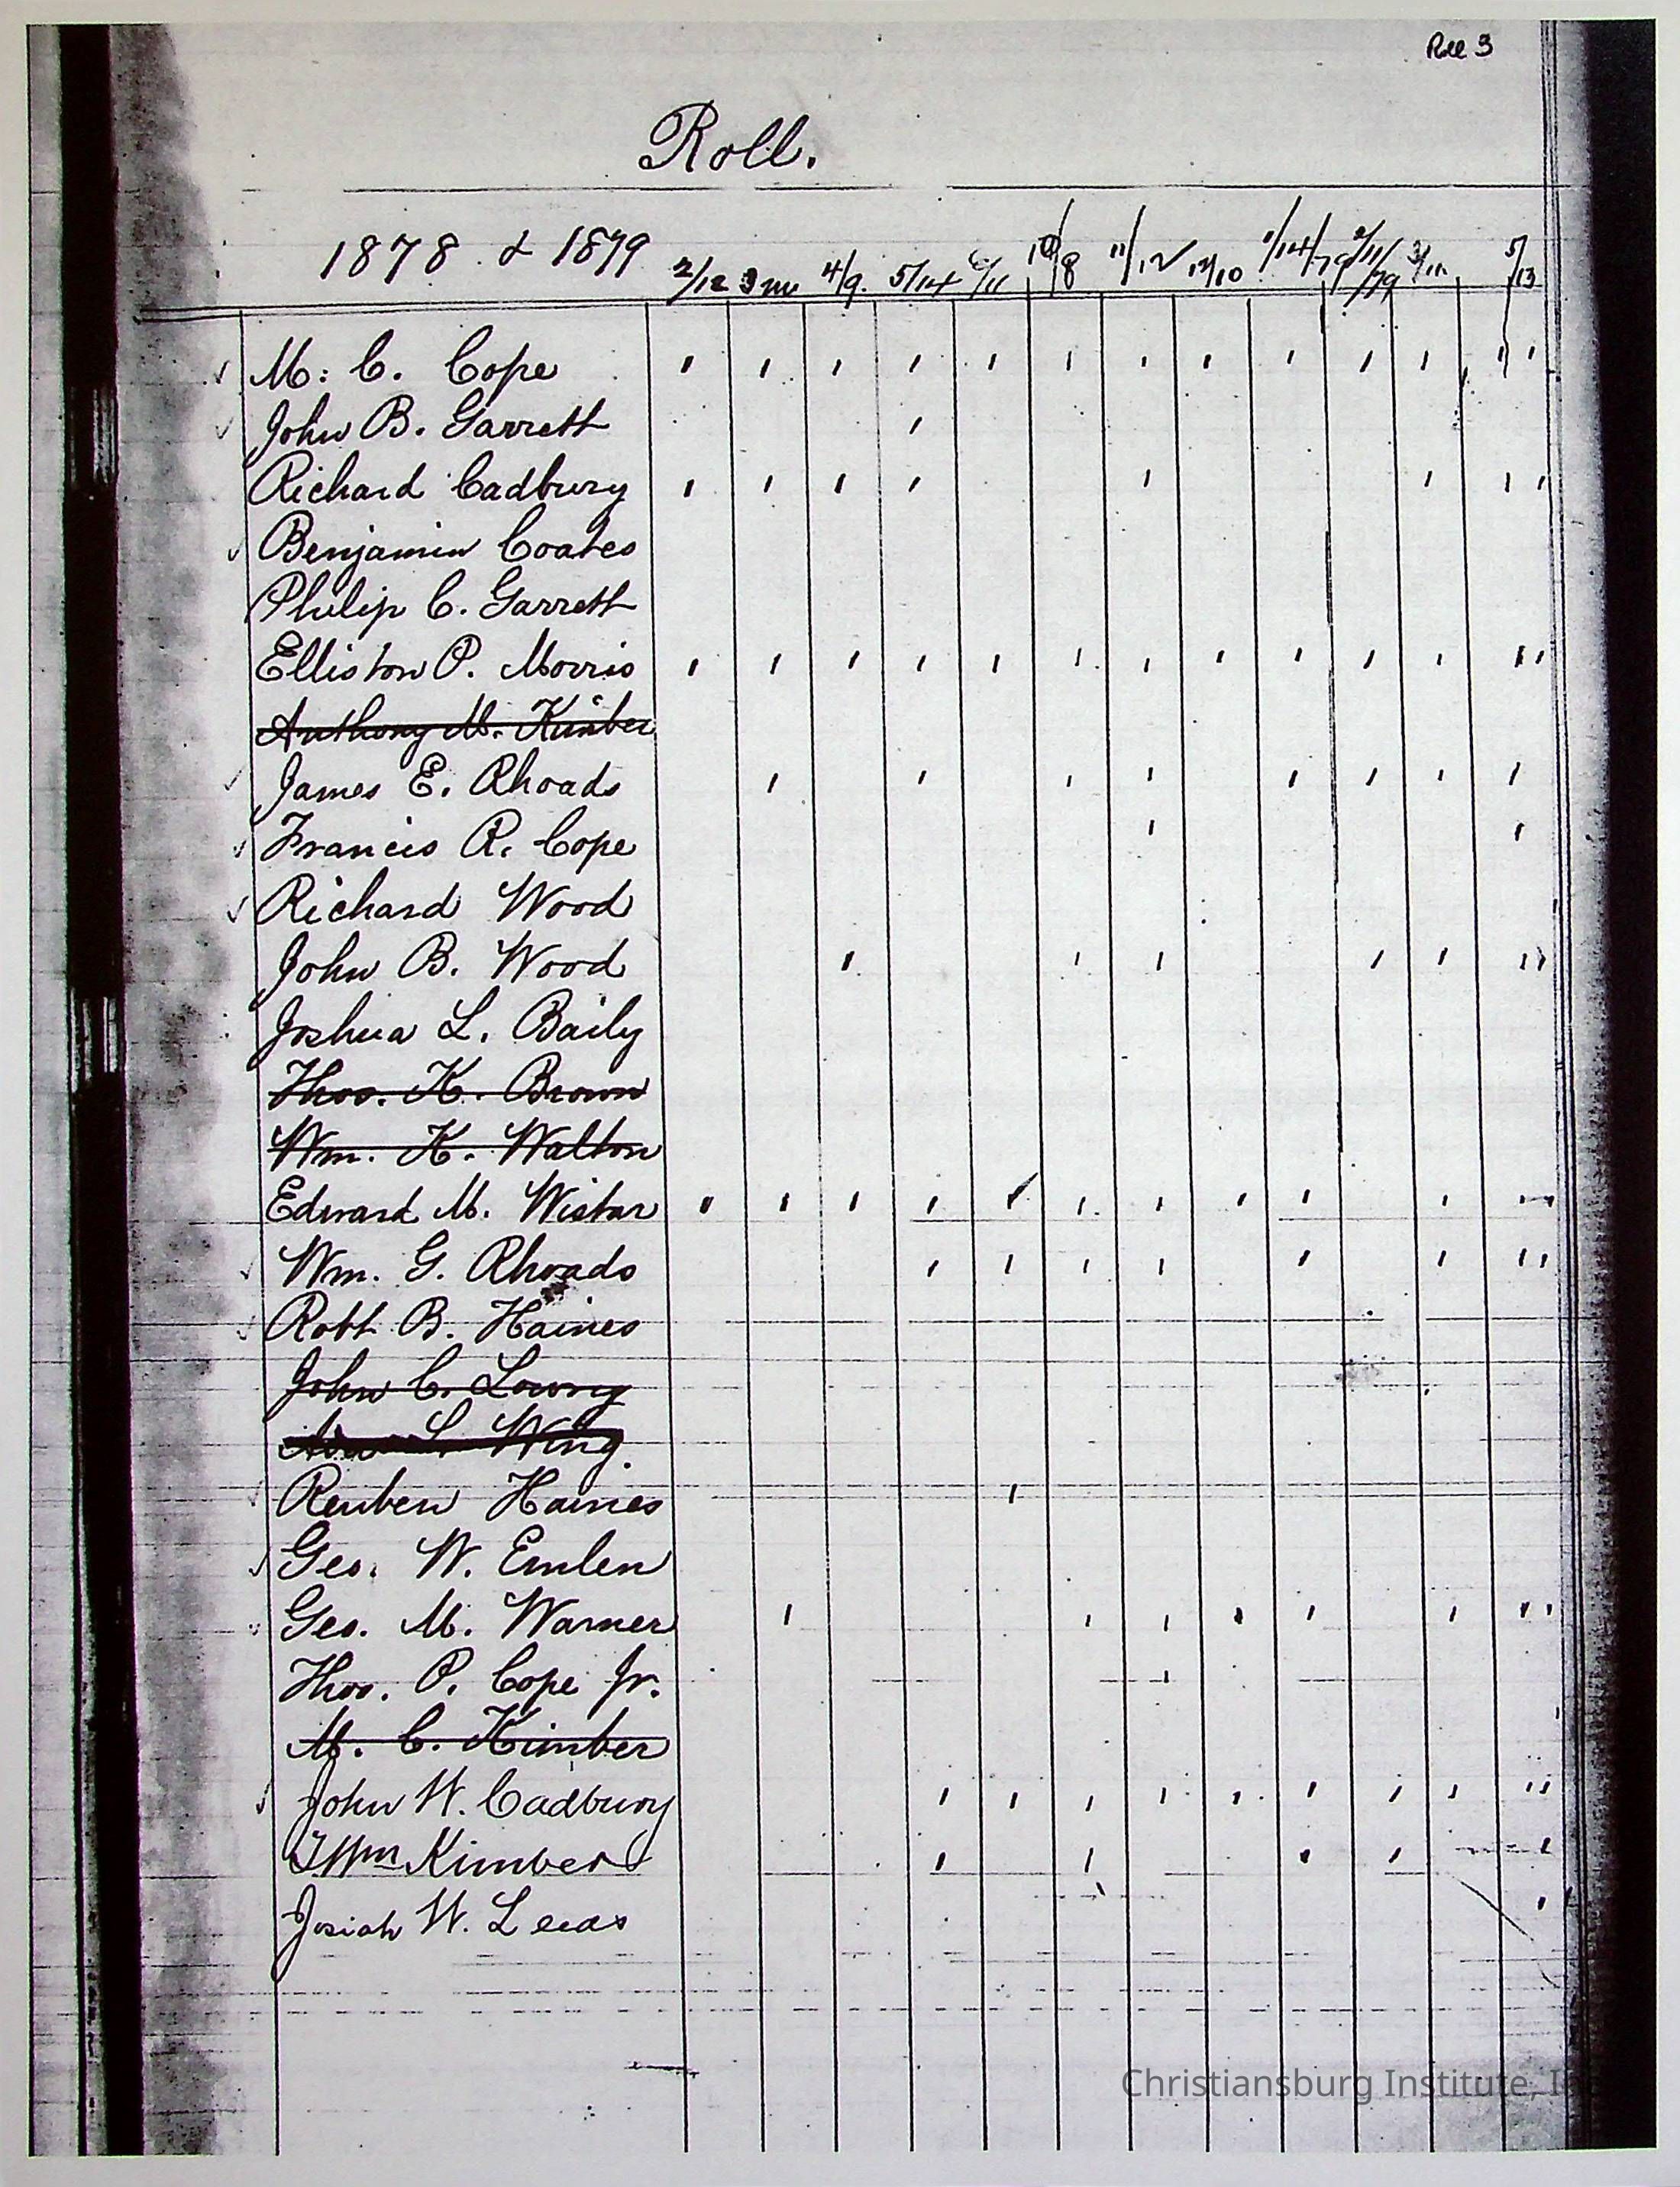 Roll 3
Roll.
1878 & 1879 2/12 3 mo 4/9. 5/14 6/11 10/8 11/12 12/10 1/14/79 2/11/79 3/11 5/13
M. C. Cope
John B. Garrett
Richard Cadbury
Benjamin Coates
Philip C. Garrett
Elliston P. Morris
Anthony M. Kimber
James E. Rhoads
Francis R. Cope
Richard Wood
John B. Wood
Joshua L. Baily
Thos. K. Brown
Wm. K. Walton
Edward M. Wistar
Wm. G. Rhoads
Robt B. Haines
John C. Lowry
L. Wing.
Reuben Haines
Geo. W. Emlen
Geo. M. Warner
Thos. P. Cope Jr.
M. C. Kimber
John W. Cadbury
T Wm Kimber
Josiah W. Leeds
Christiansburg Institute,